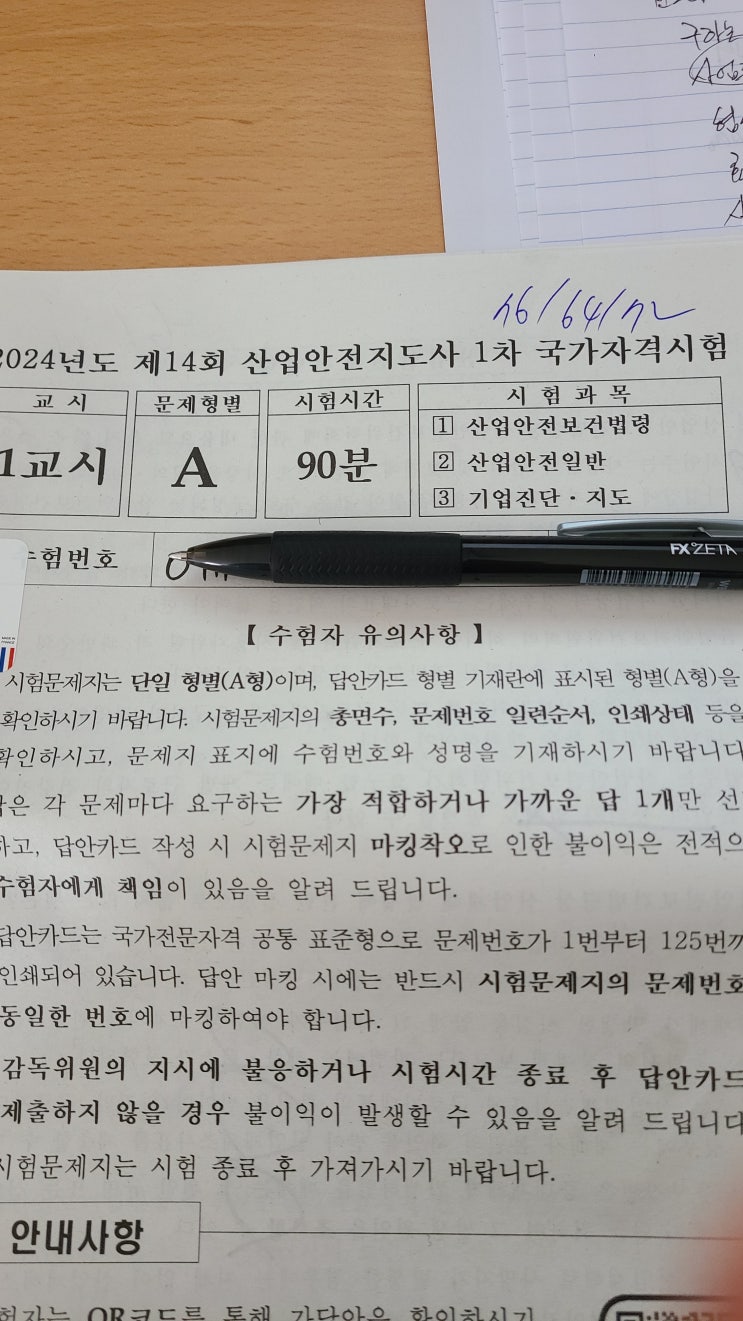 구하는
76/64/72
2024년도 제14회 산업안전지도사 1차 국가자격시험
교 시 문제형별 시험시간 시 험 과 목
1교시 A 90분
1 산업안전보건법령
2 산업안전일반
3 기업진단·지도
수험번호
FX ZETA
【 수험자 유의사항 】
시험문제지는 단일 형별(A형)이며, 답안카드 형별 기재란에 표시된 형별(A형)을
확인하시기 바랍니다. 시험문제지의 총면수, 문제번호 일련순서, 인쇄상태 등을
확인하시고, 문제지 표지에 수험번호와 성명을 기재하시기 바랍니다
답은 각 문제마다 요구하는 가장 적합하거나 가까운 답 1개만 선
하고, 답안카드 작성 시 시험문제지 마킹착오로 인한 불이익은 전적으
수험자에게 책임이 있음을 알려 드립니다.
답안카드는 국가전문자격 공통 표준형으로 문제번호가 1번부터 125번까
인쇄되어 있습니다. 답안 마킹 시에는 반드시 시험문제지의 문제번호
동일한 번호에 마킹하여야 합니다.
감독위원의 지시에 불응하거나 시험시간 종료 후 답안카드
제출하지 않을 경우 불이익이 발생할 수 있음을 알려 드립니다
시험문제지는 시험 종료 후 가져가시기 바랍니다.
안내사항
험자는 QR코드를 통해 가답안을 확인하시기